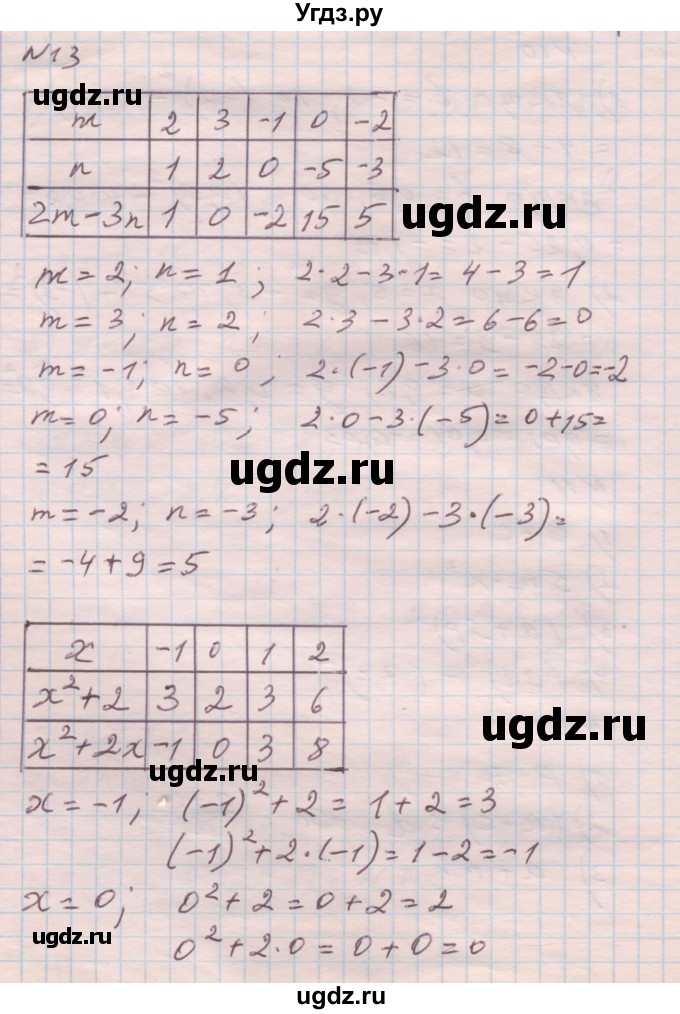 Угдз.ру
№13
ugdz.ru
m 2 3 -1 0 -2
n 1 2 0 -5 -3
2m-3n 1 0 -2 15 5
ugdz.ru
m = 2; n = 1; 2·2-3·1= 4-3=1
m = 3; n = 2; 2·3-3·2=6-6=0
m = -1; n = 0; 2·(-1)-3·0= -2-0=-2
m= 0; n= -5; 2·0-3·(-5)= 0+15=
= 15
ugdz.ru
m= -2; n= -3; 2·(-2)-3·(-3)=
= -4+9=5
x -1 0 1 2
x²+2 3 2 3 6
x²+2x -1 0 3 8
ugdz.ru
ugdz.ru
x = -1; (-1)²+2= 1+2=3
(-1)²+2·(-1)=1-2=-1
x = 0; 0²+2=0+2=2
ugdz.ru
0²+2·0=0+0=0
ugdz.ru